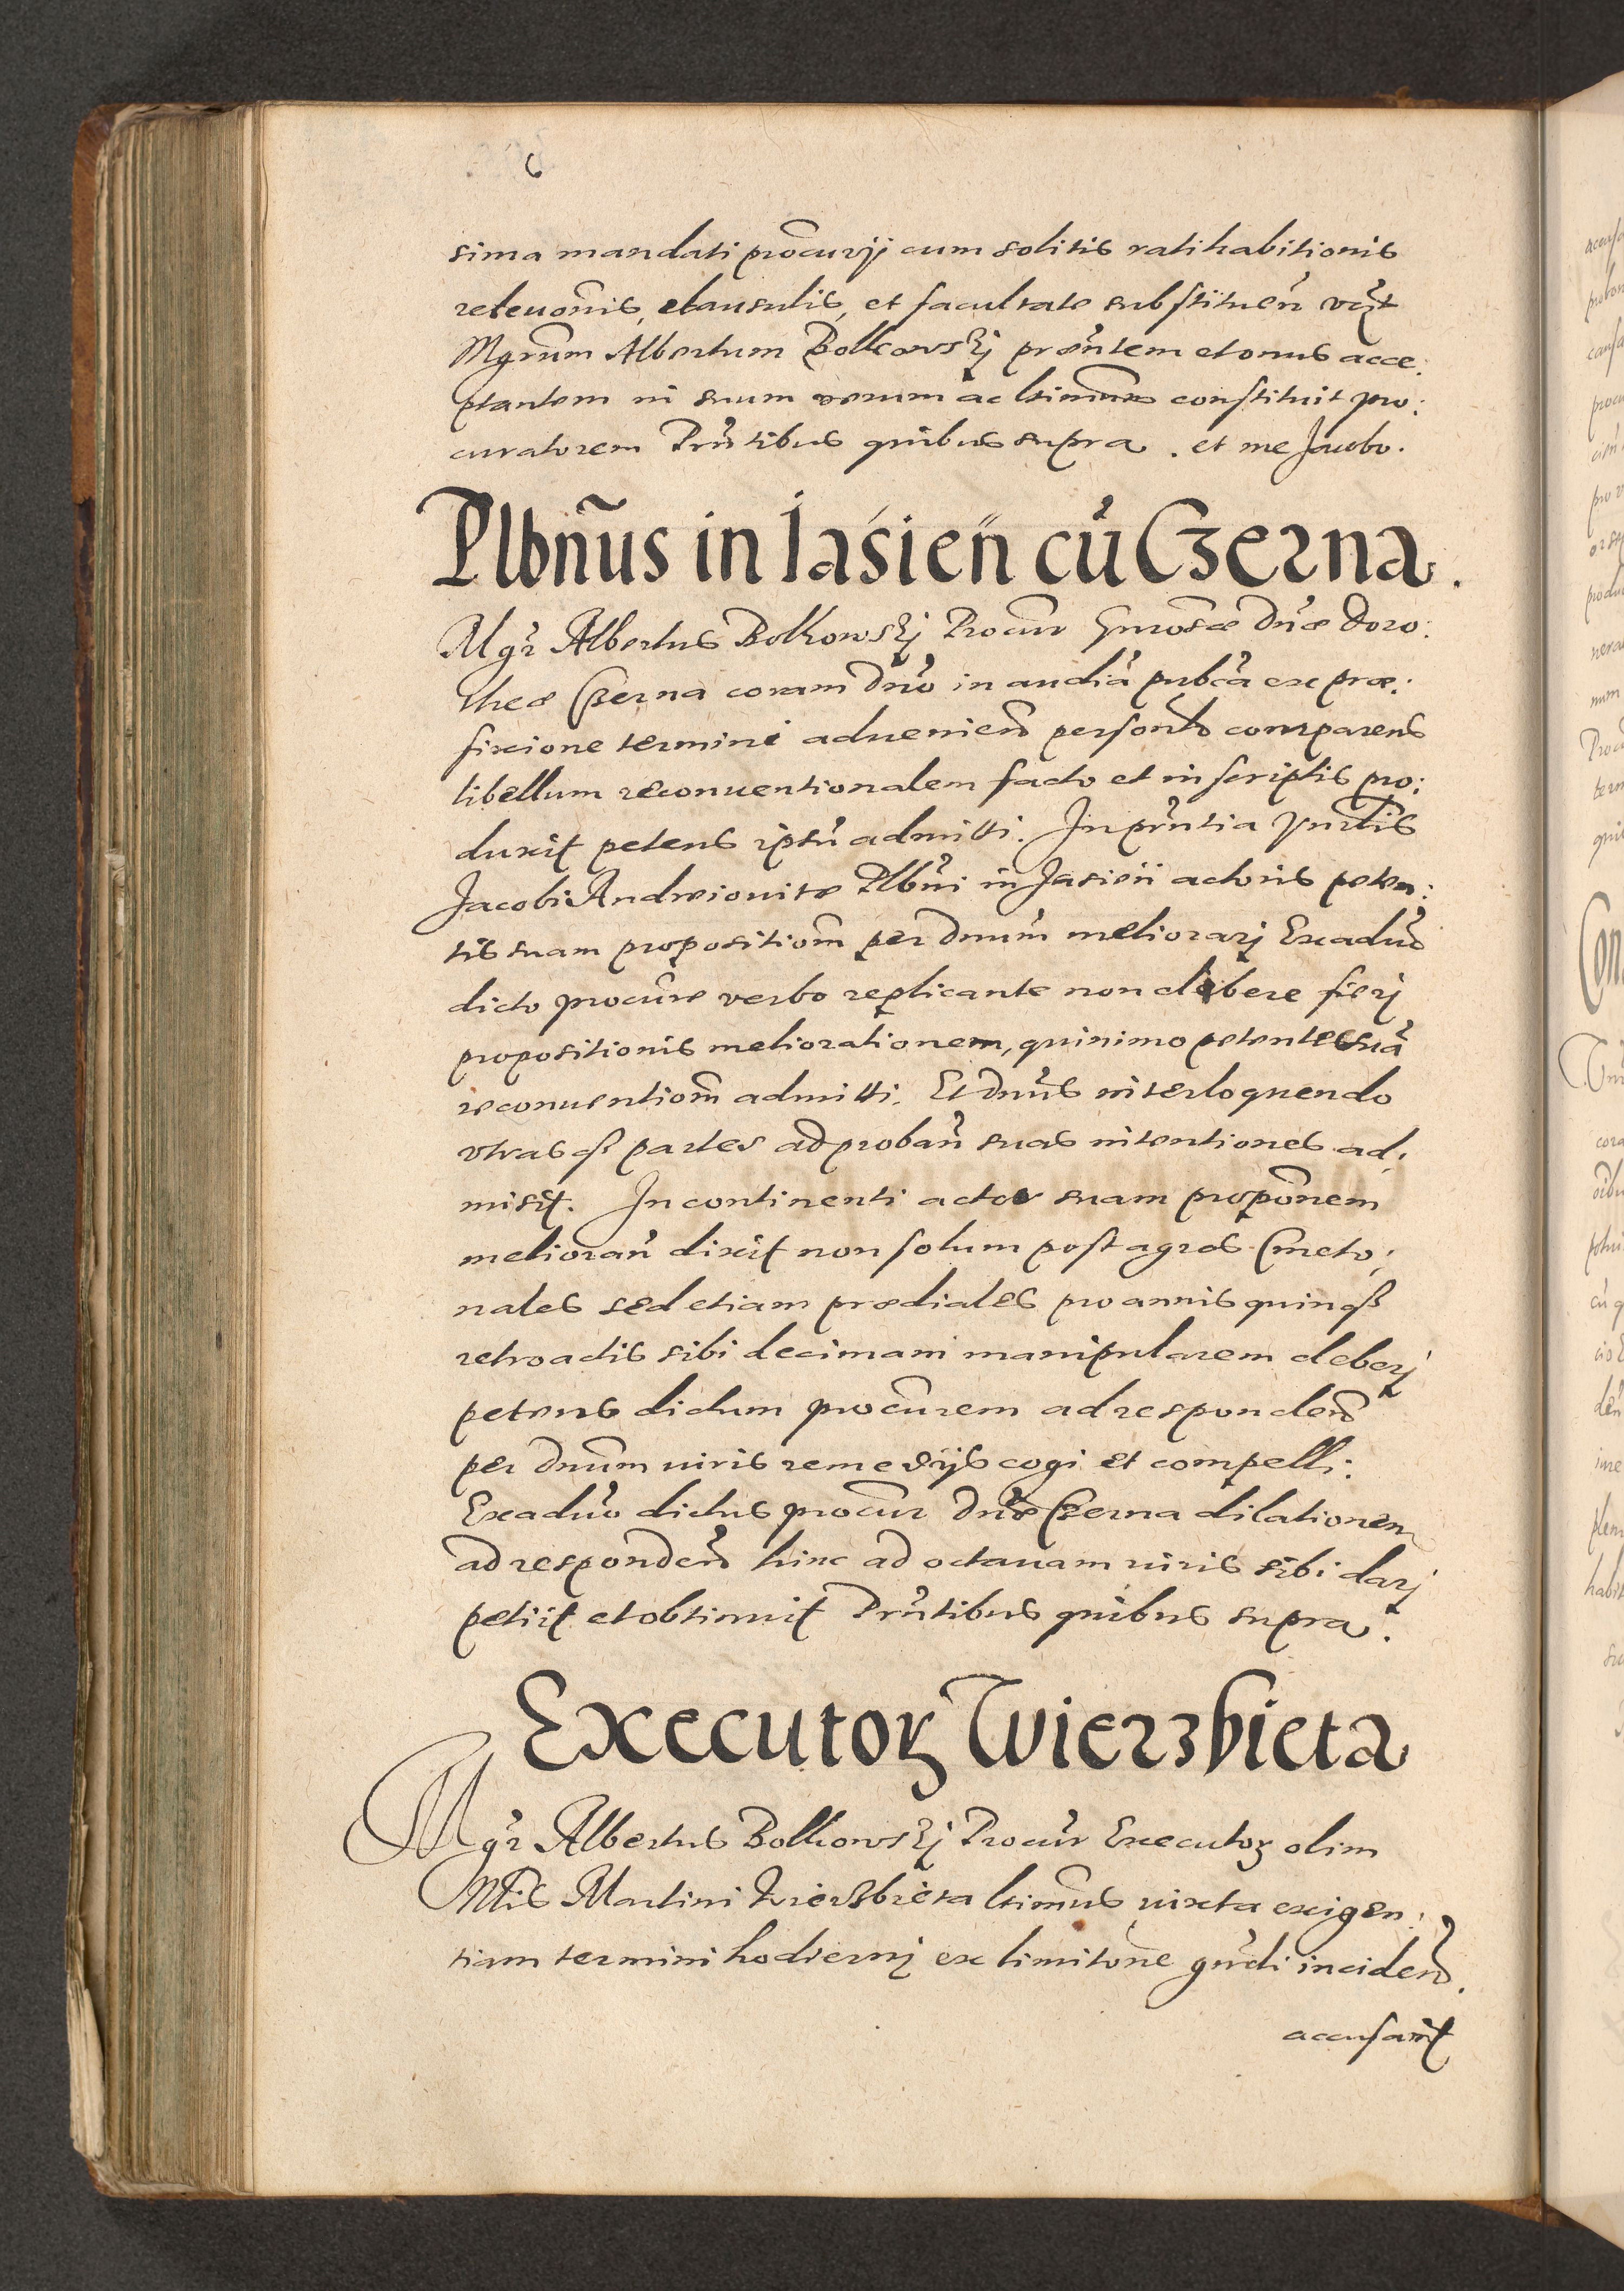 6
sima mandati procurij cum solitis ratihabitionis
releuonis, clausulis, et facultate substituen vczt
Mgrum Albertum Bolkowskj prentem et onus acce:
ptantem in suum verum ac ltimum constituit pro:
curatorem Prntibus quibus supra. et me Jacobo.
Plbnus in Jasień cu Czerna.
Mgr Albertus Bolkowskj Procur Gnrosæ Dnæ Doro:
theæ Czerna coram Dno in audia publca ex præ:
fixione termini aduenien personlr comparens
libellum reconuentionalem facto et in scriptis pro:
duxit petens ipsu admitti. In prntia Hnrlis
Jacobi Andreiouite Plbni in Jasień actoris peten:
tis suam propositiom per Dnum meliorarj Exaduo
dicto procure verbo replicante non debere fierj
propositionis meliorationem, quinimo petente sua
reconuentiom admitti. Et Dnus interloquendo
vtrasqz partes ad proban suas intentiones ad:
misit. In continenti actor suam proponem
melioran dixit non solum post agros Cmeto:
nales sed etiam prædiales pro annis quinqz
retroactis sibi decimam manipularem deberj
petens dictum procurem ad responden
per Dnum iuris remedijs cogi et compelli.
Exaduo dictus procur Dnæ Czerna dilationem
ad responden hinc ad octauam iuris sibi darj
petijt et obtinuit Prntibus quibus supra.
Executorz Wierzbieta
Mgr Albertus Bolkowskj Procur Executorz olim
Mtis Martini Wierzbieta ltimus iuxta exigen:
tiam termini hodiernj ex limitone gndi inciden.
accusauit